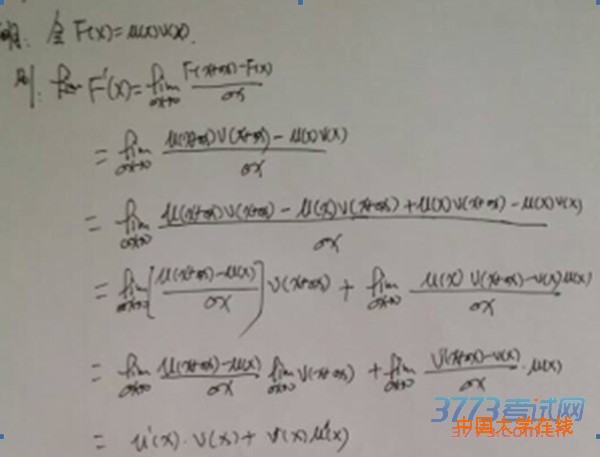 明: 令 F(x)=u(x)v(x).
则: lim F'(x)=lim Δx→0 F(x+Δx)-F(x) / Δx
= lim Δx→0 u(x+Δx)v(x+Δx)-u(x)v(x) / Δx
= lim Δx→0 u(x+Δx)v(x+Δx)-u(x)v(x+Δx)+u(x)v(x+Δx)-u(x)v(x) / Δx
= lim Δx→0 [u(x+Δx)-u(x) / Δx] v(x+Δx) + lim Δx→0 u(x) v(x+Δx)-v(x)u(x) / Δx
= lim Δx→0 u(x+Δx)-u(x) / Δx lim Δx→0 v(x+Δx) + lim Δx→0 v(x+Δx)-v(x) / Δx · u(x)
= u'(x)·v(x)+v'(x)u(x)
3773考试网
中国大学在线